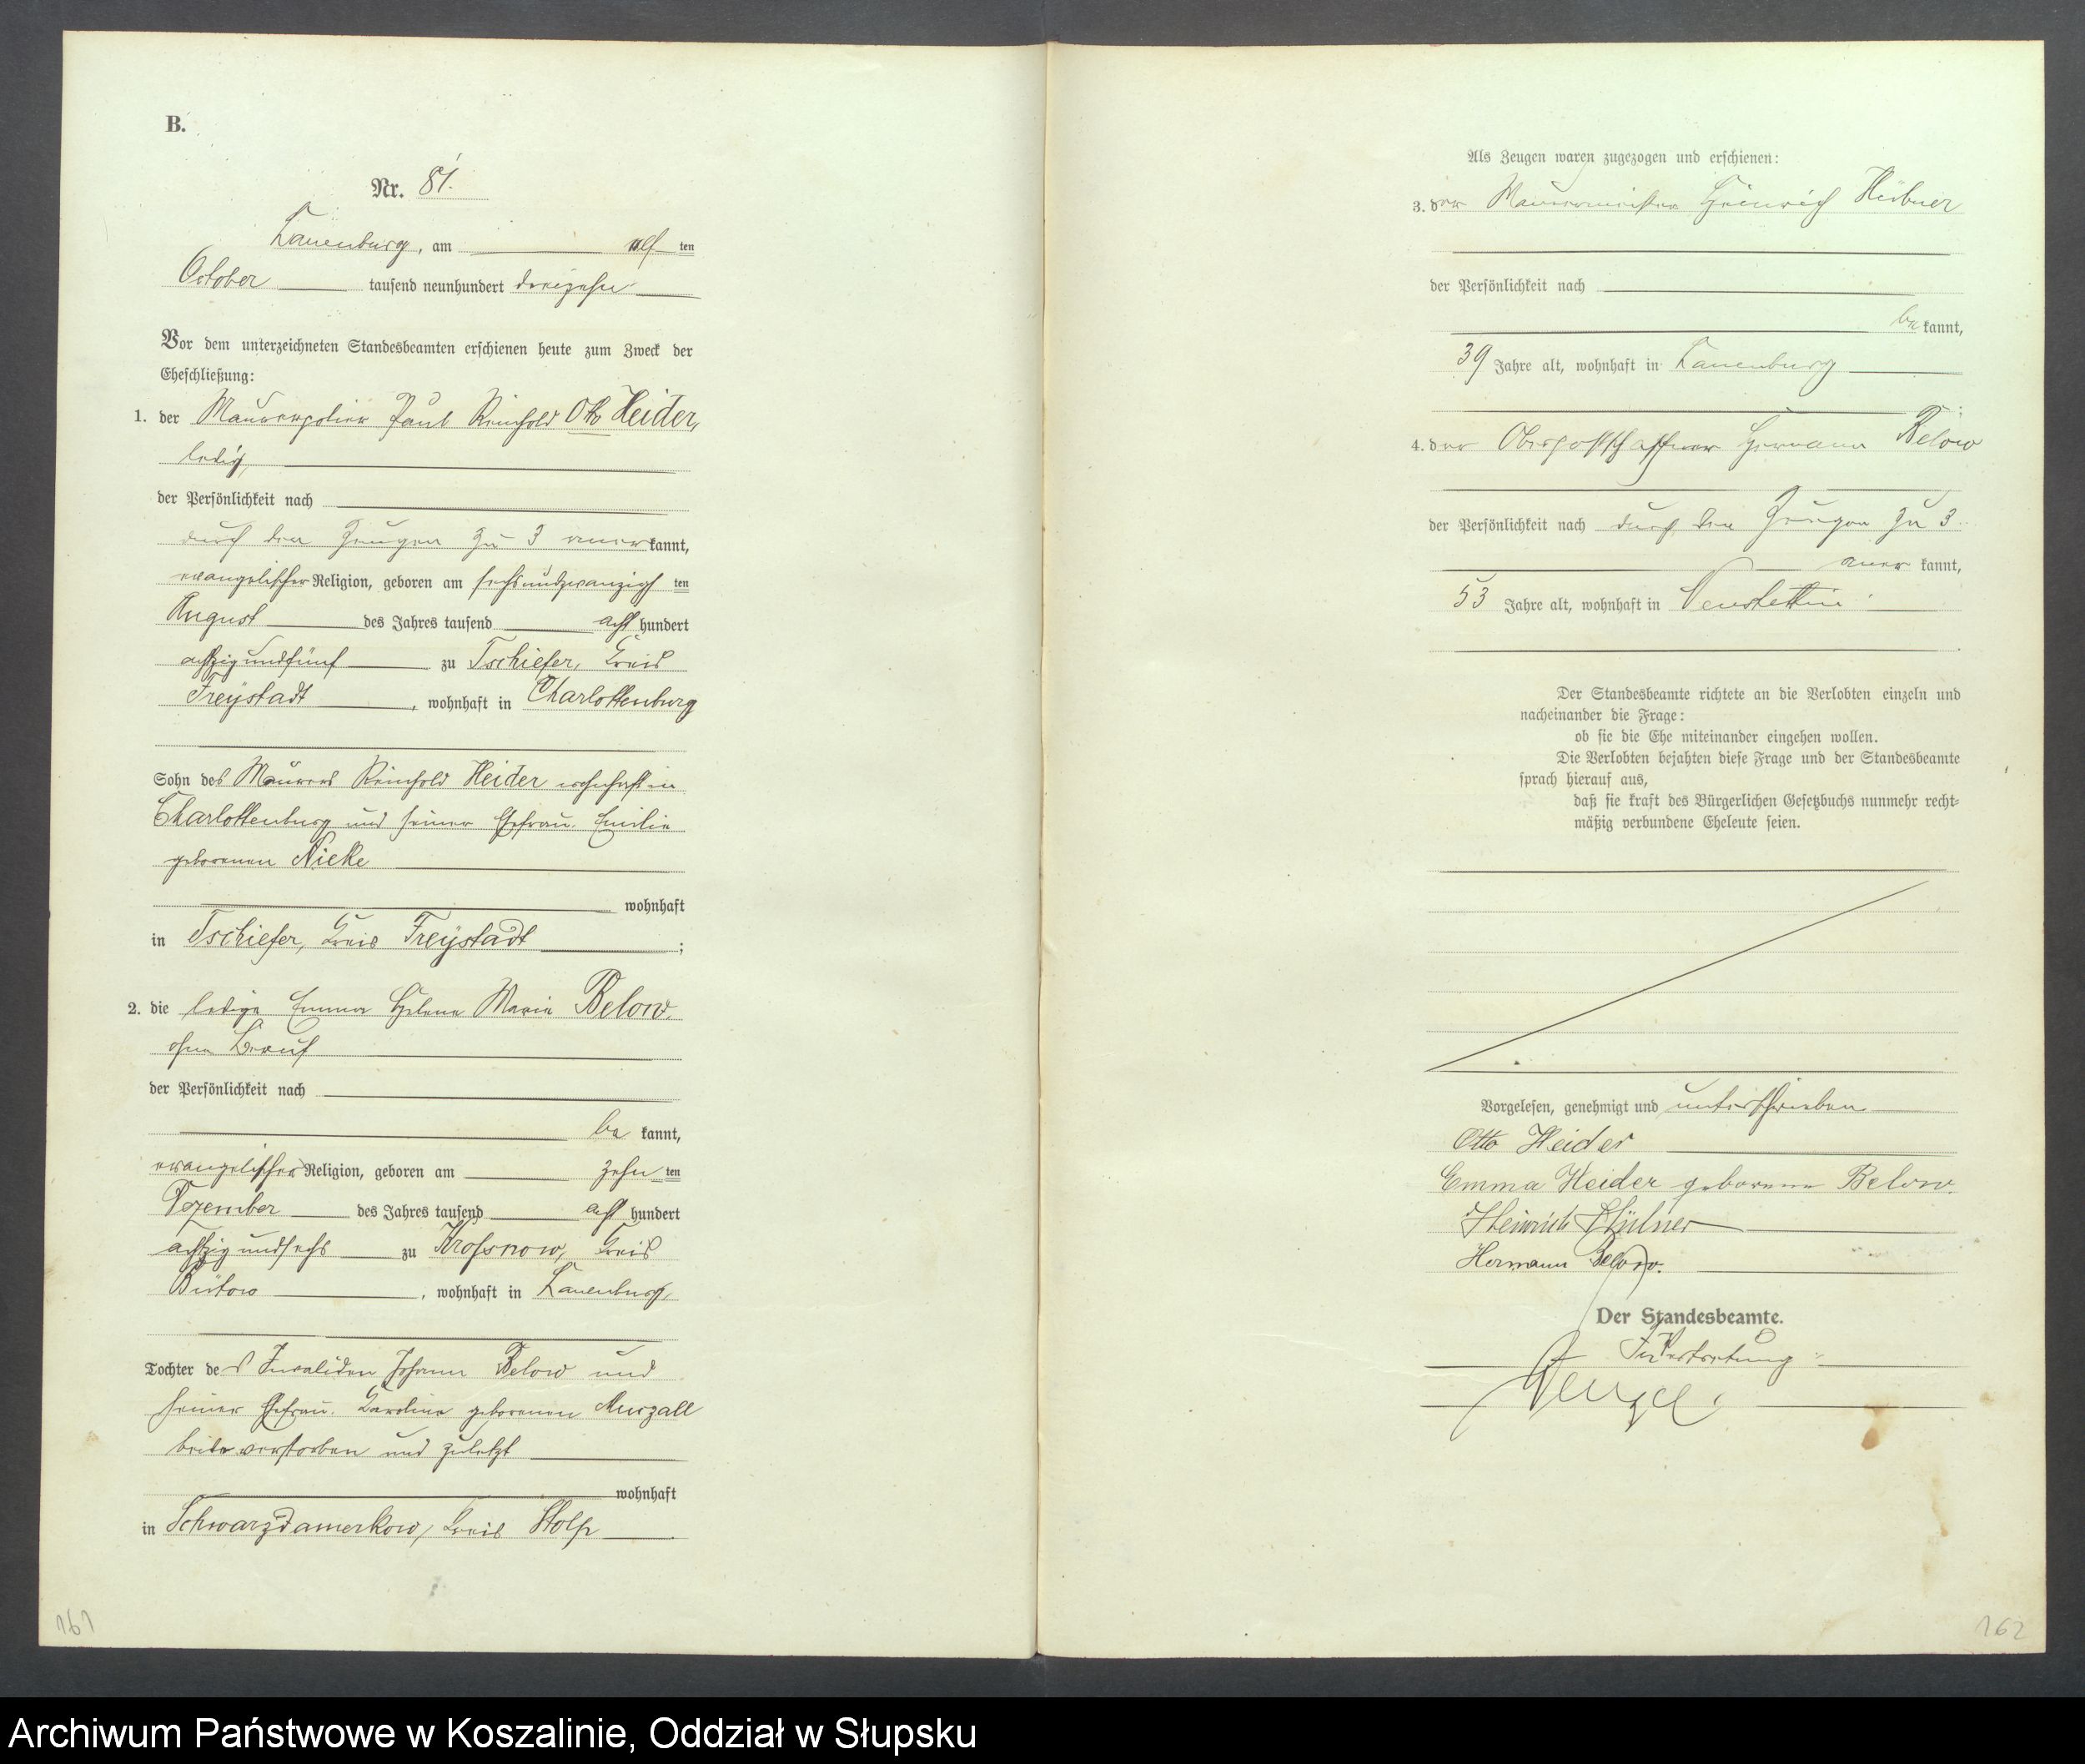 B.
Nr. 81.
Lauenburg, am elf ten
October tausend neunhundert dreizehn
Vor dem unterzeichneten Standesbeamten erschienen heute zum Zweck der
Eheschließung:
1. der Maurerpolier Paul Reinhold Otto Heider,
ledig,
der Persönlichkeit nach
durch den Zeugen zu 3 aner kannt,
evangelischer Religion, geboren am sechsundzwanzigsten
August des Jahres tausend acht hundert
achtzigundfünf zu Tschiefer, Kreis
Freystadt, wohnhaft in Charlottenburg
Sohn des Maurers Reinhold Heider wohnhaft in
Charlottenburg und seiner Ehefrau Emilie
geborenen Nicke
wohnhaft
in Tschiefer, Kreis Freystadt;
2. die ledige Emma Helene Marie Below,
ohne Beruf
der Persönlichkeit nach
be kannt,
evangelischer Religion, geboren am zehn ten
Dezember des Jahres tausend acht hundert
achtzigundsechs zu Krossnow, Kreis
Bütow, wohnhaft in Lauenburg,
Tochter des Invaliden Johann Below und
seiner Ehefrau Karoline geborenen Murzall
beide verstorben und zuletzt
wohnhaft
in Schwarz Damerkow, Kreis Stolp
161
Als Zeugen waren zugezogen und erschienen:
3. der Maurermeister Heinrich Hübner
der Persönlichkeit nach
be kannt,
39 Jahre alt, wohnhaft in Lauenburg
;
4. der Oberpostschaffner Hermann Below
der Persönlichkeit nach durch den Zeugen zu 3
aner kannt,
53 Jahre alt, wohnhaft in Neustettin
.
Der Standesbeamte richtete an die Verlobten einzeln und
nacheinander die Frage:
ob sie die Ehe miteinander eingehen wollen.
Die Verlobten bejahten diese Frage und der Standesbeamte
sprach hierauf aus,
daß sie kraft des Bürgerlichen Gesetzbuchs nunmehr recht-
mäßig verbundene Eheleute seien.
Vorgelesen, genehmigt und unterschrieben
Otto Heider
Emma Heider geborene Below.
Heinrich Hübner
Hermann Below.
Der Standesbeamte.
In Vertretung:
Wenzel.
162
Archiwum Państwowe w Koszalinie, Oddział w Słupsku